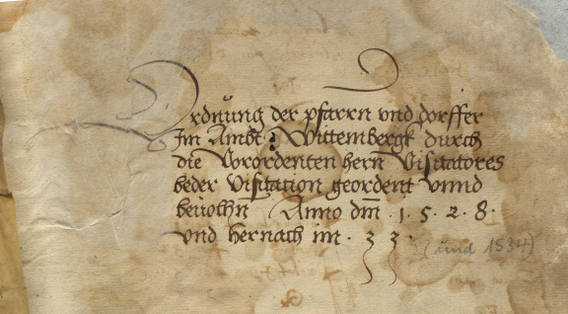 Ordnŭung der pfarrn vnd dorffer
Im Ambt Wittembergk durch
die Vorordenten hern Visitatores
beder visitation geordent vnnd
beuolhn Anno dm̄ . 1 . 5 . 2 . 8 .
vnd hernach im . 3 3 . (und 1534)